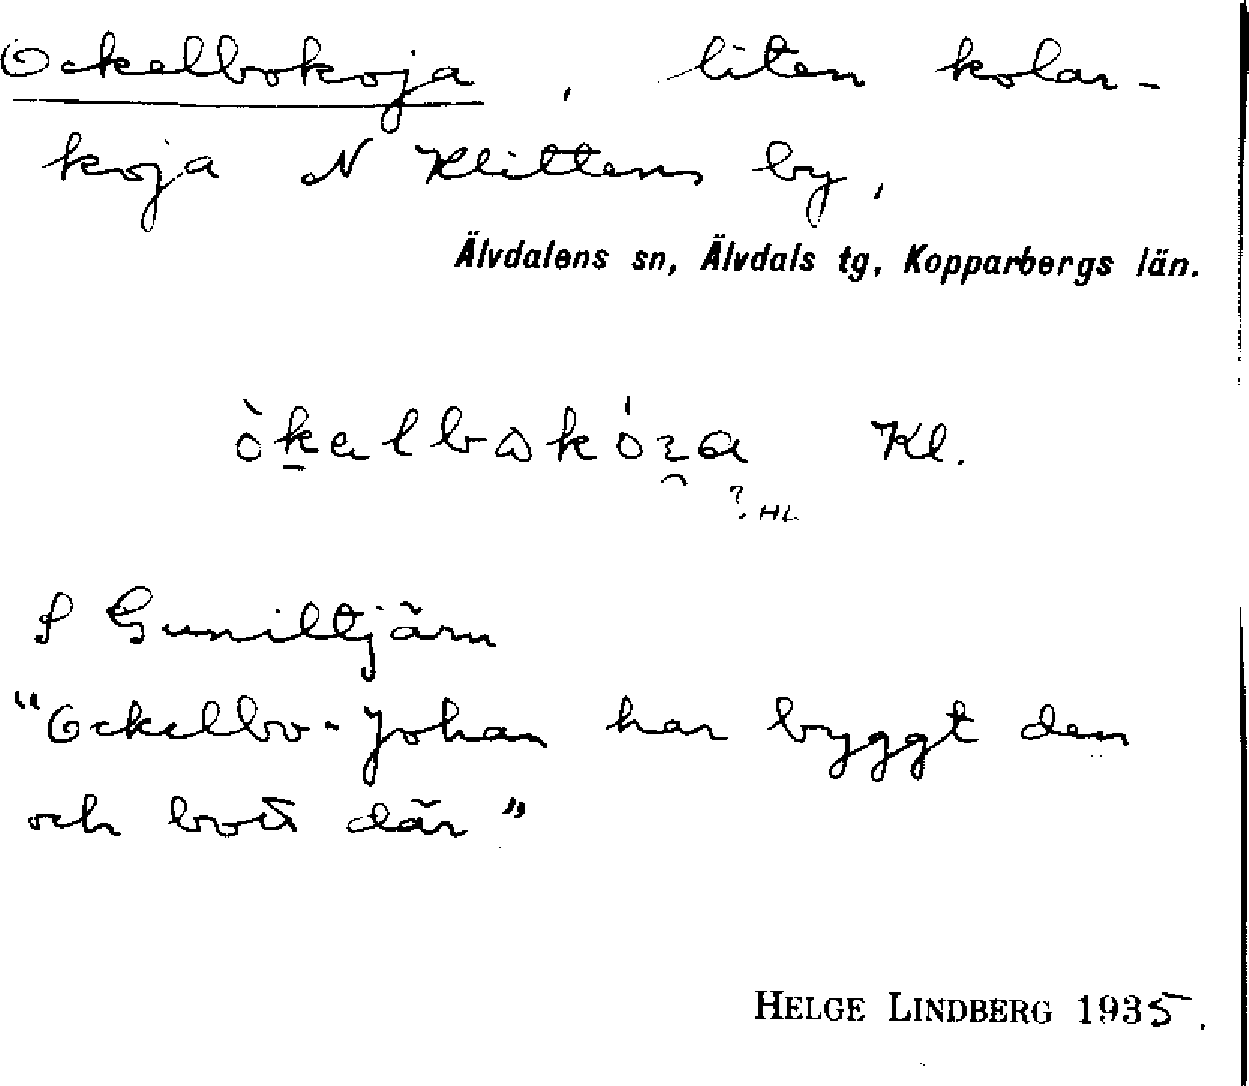 Ockelbokoja, liten kolar-
koja N Klittens by,
Älvdalens sn, Älvdals tg, Kopparbergs län.
Kl.
? HL
S Guniltjärn
"Ockelbo-Johan har byggt den
och bott där"
HELGE LINDBERG 1935.